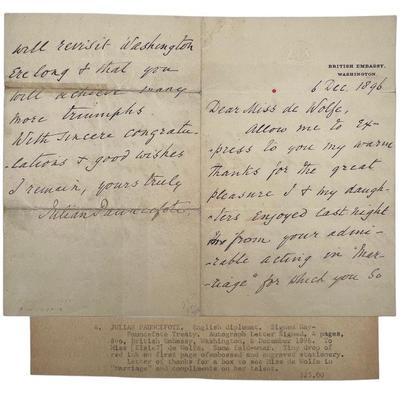 BRITISH EMBASSY,
WASHINGTON.
6 Dec. 1896
Dear Miss de Wolfe,
Allow me to ex-
-press to you my warm
thanks for the great
pleasure I & my daugh-
-ters enjoyed last night
from your admi-
-rable acting in "Mar-
-riage" for which you so
will revisit Washington
ere long & that you
will achieve many
more triumphs.
With sincere congratu-
-lations & good wishes
I remain, yours truly
Julian Pauncefote
JULIAN PAUNCEFOTE. English diplomat. Signed Hay-
Pauncefote Treaty. Autograph Letter Signed, 4 pages,
8vo, British Embassy, Washington, 6 December 1896. To
Miss [Elsie] de Wolfe. Some fold-wear. Tiny drop of
red ink on first page of embossed and engraved stationery.
Letter of thanks for a box to see Miss de Wolfe in
"Marriage" and compliments on her talent.
$25.00